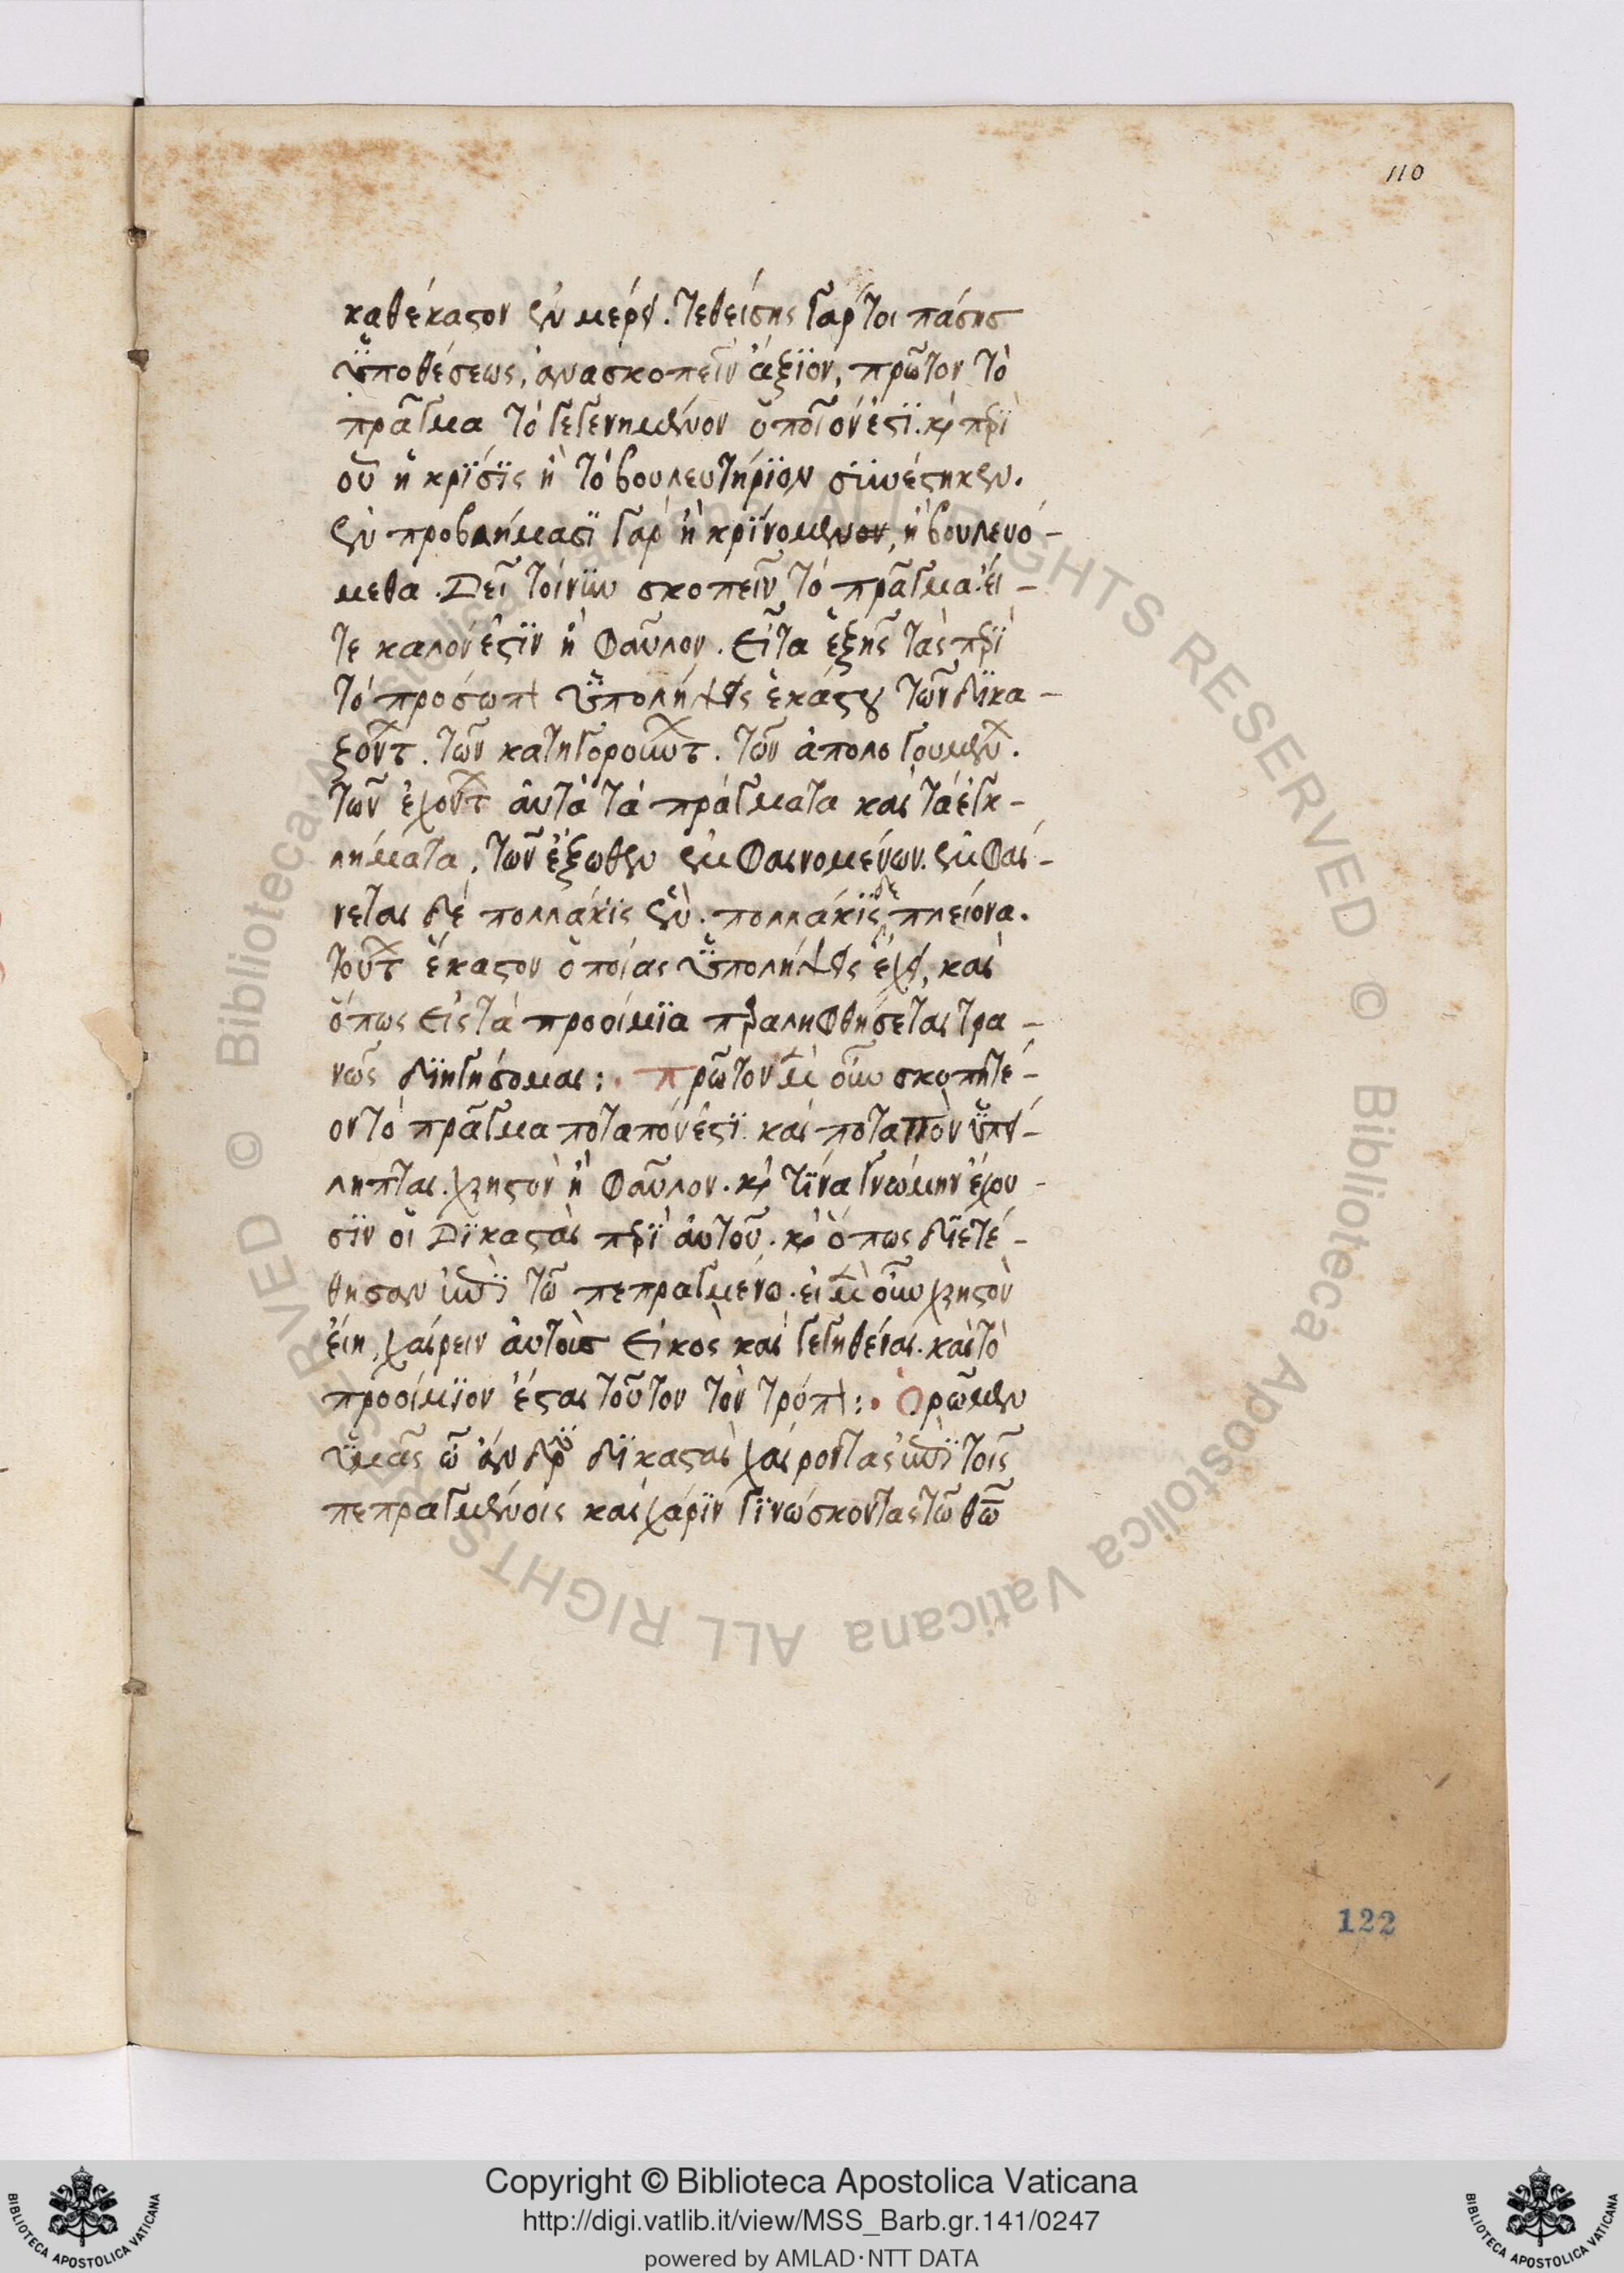 110
καθέκαστον ἐν μέρει. τεθείσης γάρ τοι πάσης
ὑποθέσεως, ἀνασκοπεῖν ἄξϊον, πρῶτον τὸ
πρᾶγμα τὸ γεγενημένον ὁποῖον ἐστϊ. κὶ περὶ
οὗ ἡ κρϊσϊς ἢ τὸ βουλευτήρϊον συνέστηκεν.
ἐν προβλήμασϊ γὰρ ἢ κρϊνομεν, ἢ βουλευό-
μεθα. Δεῖ τοίνυν σκοπεῖν τὸ πρᾶγμα. εἴ-
τε καλόν ἐστϊν ἢ φαῦλον. Εἶτα ἑξῆς τὰς περὶ
τὸ πρόσωπον ὑπολήψεις ἑκάστου τῶν δϊκα-
ζόντων. τῶν κατηγορούντων. τῶν ἀπολογουμένων.
τῶν ἐχόντων αὐτὰ τὰ πράγματα καὶ τὰ ἐγκ-
λήματα, τῶν ἔξωθεν ἐμφαινομένων. ἐμφαί-
νεται δὲ πολλάκϊς ἕν. πολλάκϊς δὲ πλείονα.
τούτων ἕκαστον ὁποίας ὑπολήψεις ἔχει, καὶ
ὅπως εἰς τὰ προοίμϊα παραληφθήσεται τρα-
νῶς δϊηγήσομαι:. πρῶτον μὲν οὖν σκοπητέ-
ον τὸ πρᾶγμα ποταπόν ἐστϊ. καὶ ποταπὸν ὑπεί-
ληπται. χρηστὸν ἢ φαῦλον. κὶ τίνα γνώμην ἔχου-
σϊν οἱ Δϊκασταὶ περὶ αὐτοῦ. κὶ ὅπως δϊετέ-
θησαν ἐπὶ τῶ πεπραγμένω. εἰ μὲν οὖν χρηστὸν
εἴη, χαίρειν αὐτοὺς εἰκὸς καὶ γεγηθέναι. καὶ τὸ
προοίμϊον ἔσται τοῦτον τὸν τρόπον:. Ὁρῶμεν
ὑμᾶς ὦ ἄνδρες δϊκασταὶ χαίροντας ἐπὶ τοῖς
πεπραγμένοις καὶ χάρϊν γϊνώσκοντας τῶ θεῶ
122
© Biblioteca Apostolica Vaticana ALL RIGHTS RESERVED © Biblioteca Apostolica Vaticana ALL RIGHTS RESERVED
Copyright © Biblioteca Apostolica Vaticana
http://digi.vatlib.it/view/MSS_Barb.gr.141/0247
powered by AMLAD·NTT DATA
BIBLIOTECA APOSTOLICA VATICANA
BIBLIOTECA APOSTOLICA VATICANA